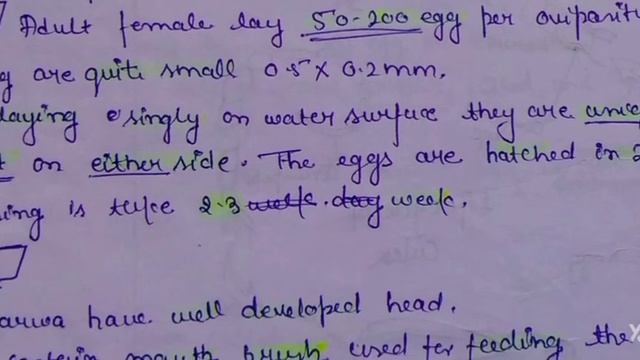 Adult female lay 50-200 egg per oviparit
g are quit small 0.5 x 0.2mm.
laying singly on water surface they are
on either side. The eggs are hatched in 2
ing is 2-3 week. day week.
arwa have well developed head.
mouth brush used for feeding the